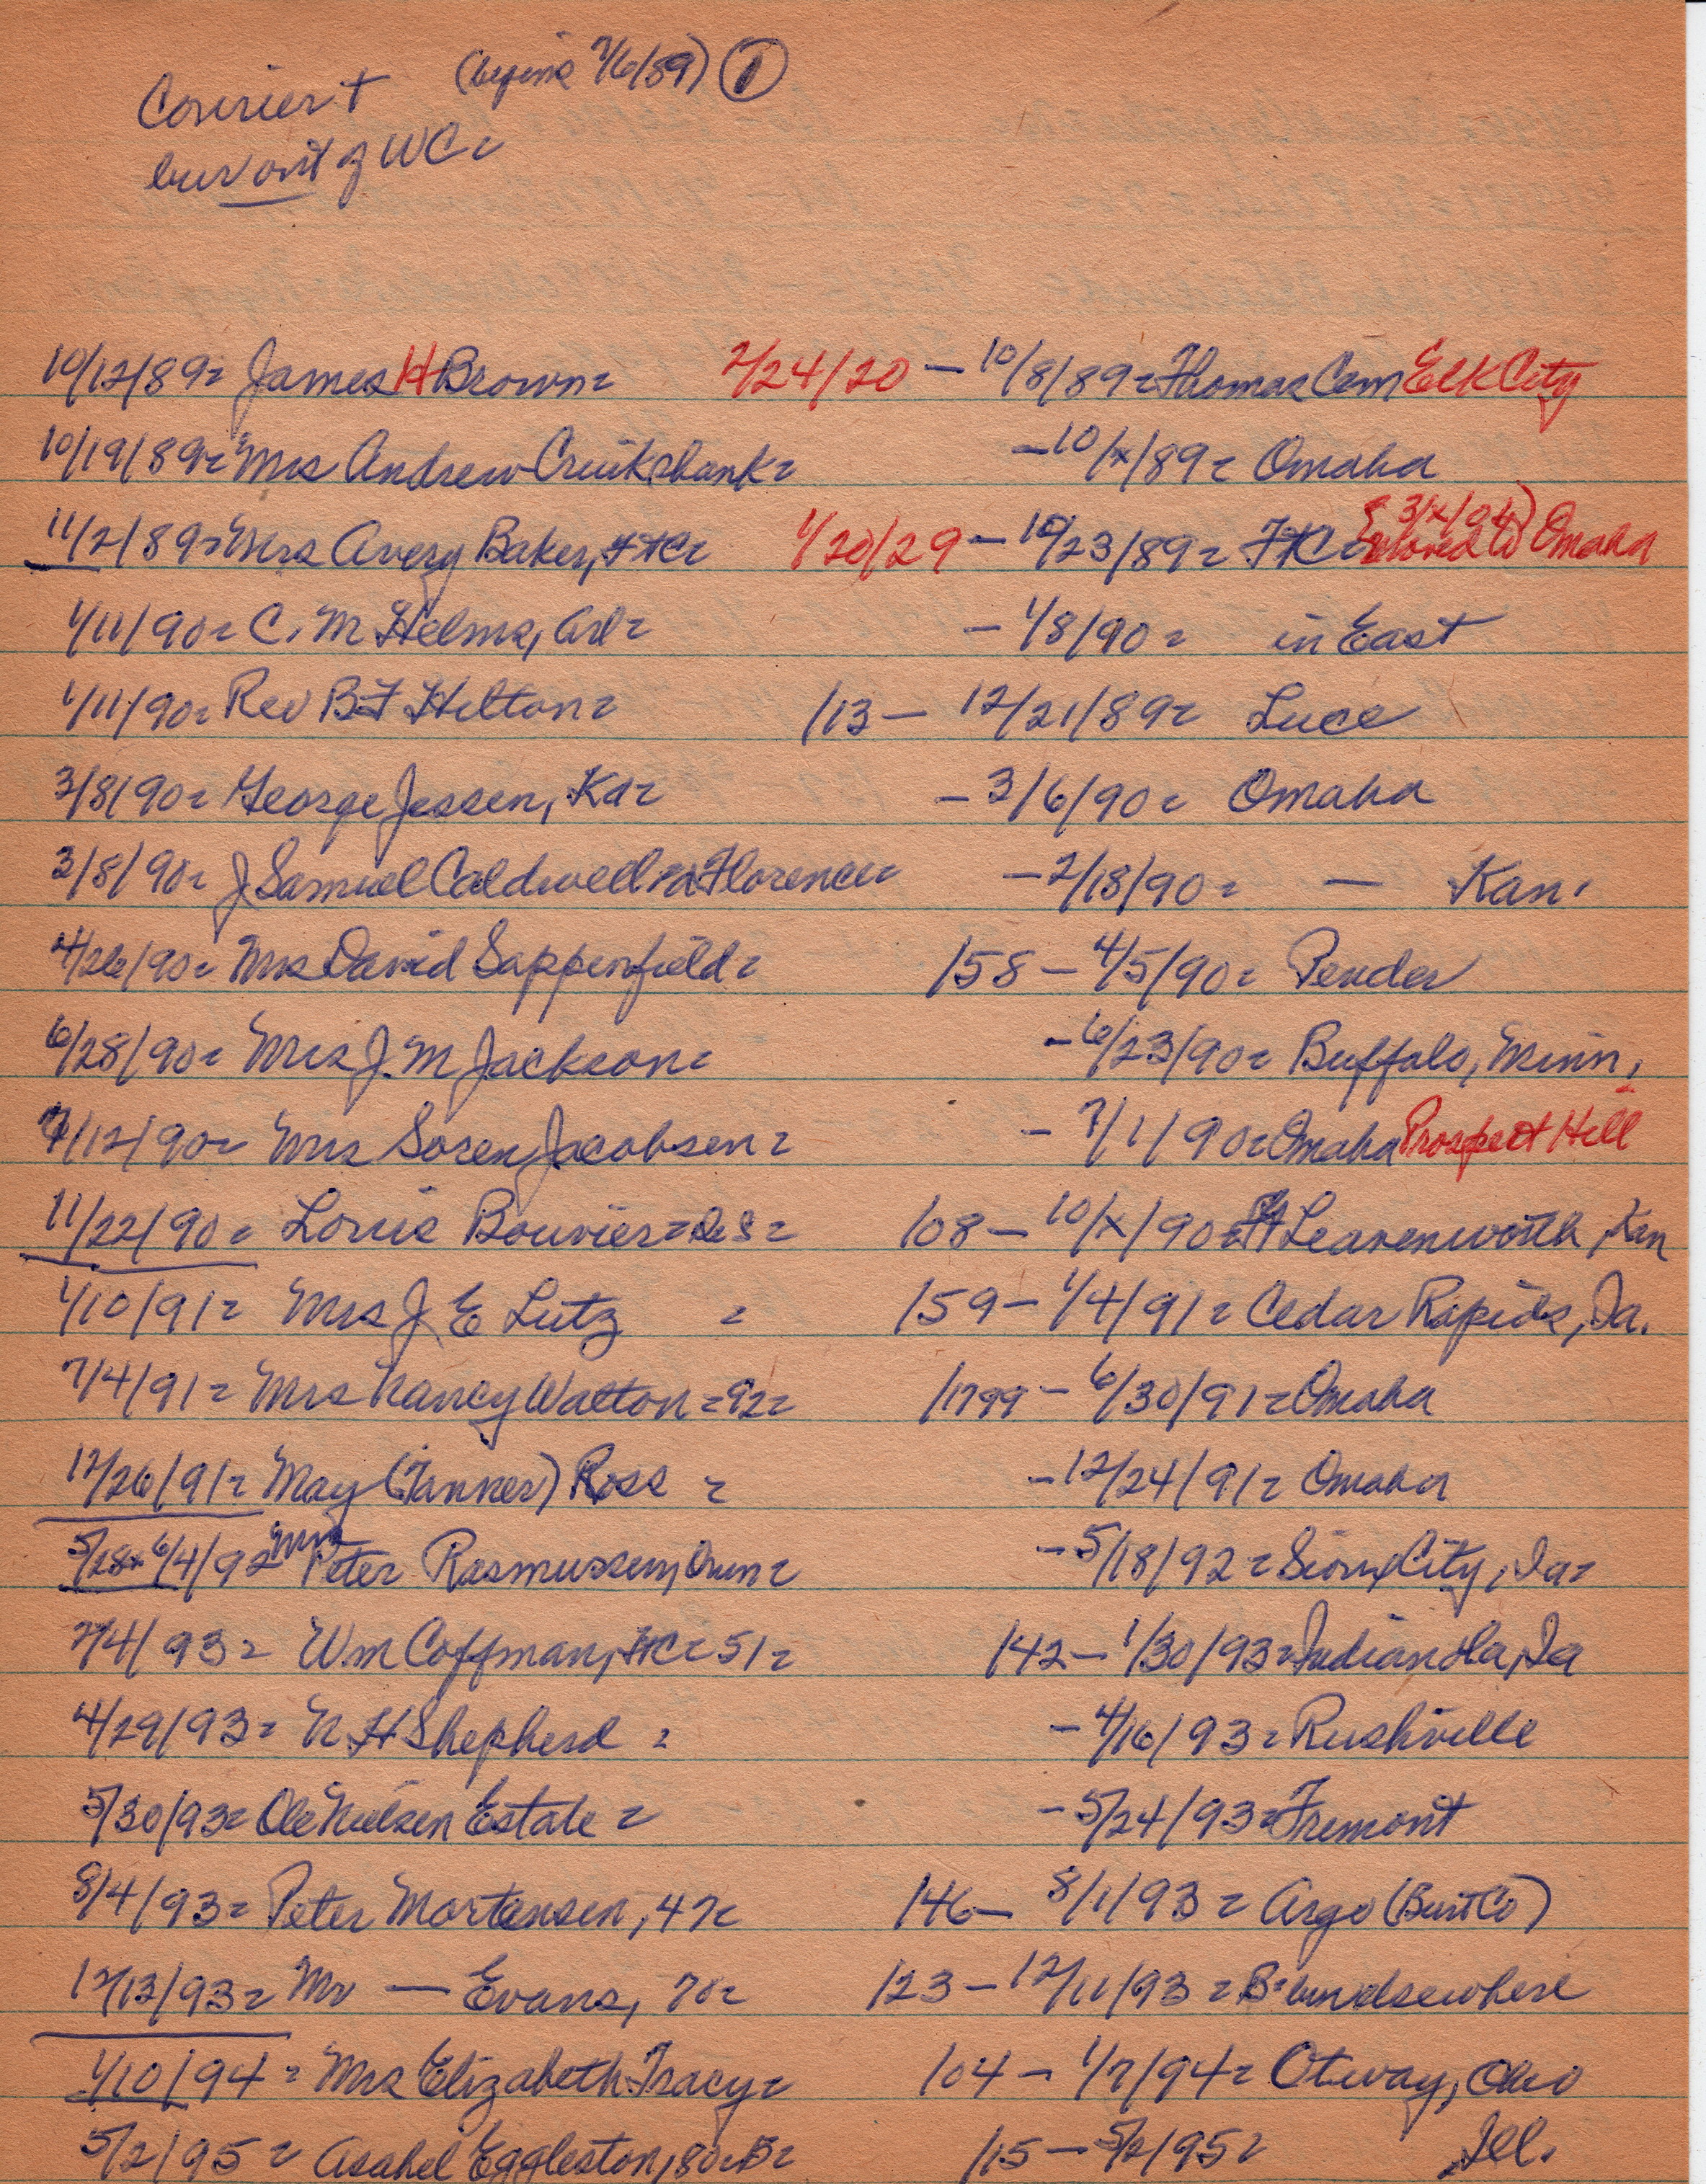 Courier + (begins 7/6/89) 1
bur out of WC=
10/12/89= James H Brown= 2/24/20 — 10/8/89= Thomas Cem Elk City
10/19/89= Mrs Andrew Cruikshank= — 10/x/89= Omaha
11/2/89= Mrs Avery Baker, FtC= 1/20/29 — 10/23/89= FtC= (3/x/04) moved to Omaha
1/11/90= C. M Helms, Arl= — 1/8/90= in East
1/11/90= Rev BF Hilton= /13 — 12/21/89= Luce
3/8/90= George Jessen, Ka= — 3/6/90= Omaha
3/8/90= J Samuel Caldwell = Florence= — 2/18/90= — Kan.
4/26/90= Mrs David Sappenfield= /58 — 4/5/90= Pender
6/28/90= Mrs J. M Jackson= — 6/23/90= Buffalo, Minn.
7/12/90= Mrs Soren Jacobsen= — 7/1/90= Omaha Prospect Hill
11/22/90= Louis Bouvier= DeS= /08 — 10/x/90= Ft Leavenworth, Kan
1/10/91= Mrs J E Lutz = /59 — 1/4/91= Cedar Rapids, Ia.
7/4/91= Mrs Nancy Walton=92= /1799 — 6/30/91= Omaha
12/26/91= May (Tanner) Ross = — 12/24/91= Omaha
5/28+6/4/92 Mrs Peter Rasmussen, Orum= — 5/18/92= Sioux City, Ia=
2/4/93= Wm Coffman, HC= 51= /42 — 1/30/93= Indianola, Ia
4/29/93= N H Shepherd = — 4/16/93= Rushville
5/30/93= Ole Nielsen Estate = — 5/24/93= Fremont
8/4/93= Peter Mortensen, 47= /46 — 8/1/93= Argo (Burt Co)
12/13/93= Mr — Evans, 70= /23 — 12/11/93= B= bur elsewhere
1/10/94= Mrs Elizabeth Tracy= /04 — 1/7/94= Otway, Ohio
5/2/95= Asahel Eggleston, 80=B= /15 — 5/2/95= Ill.